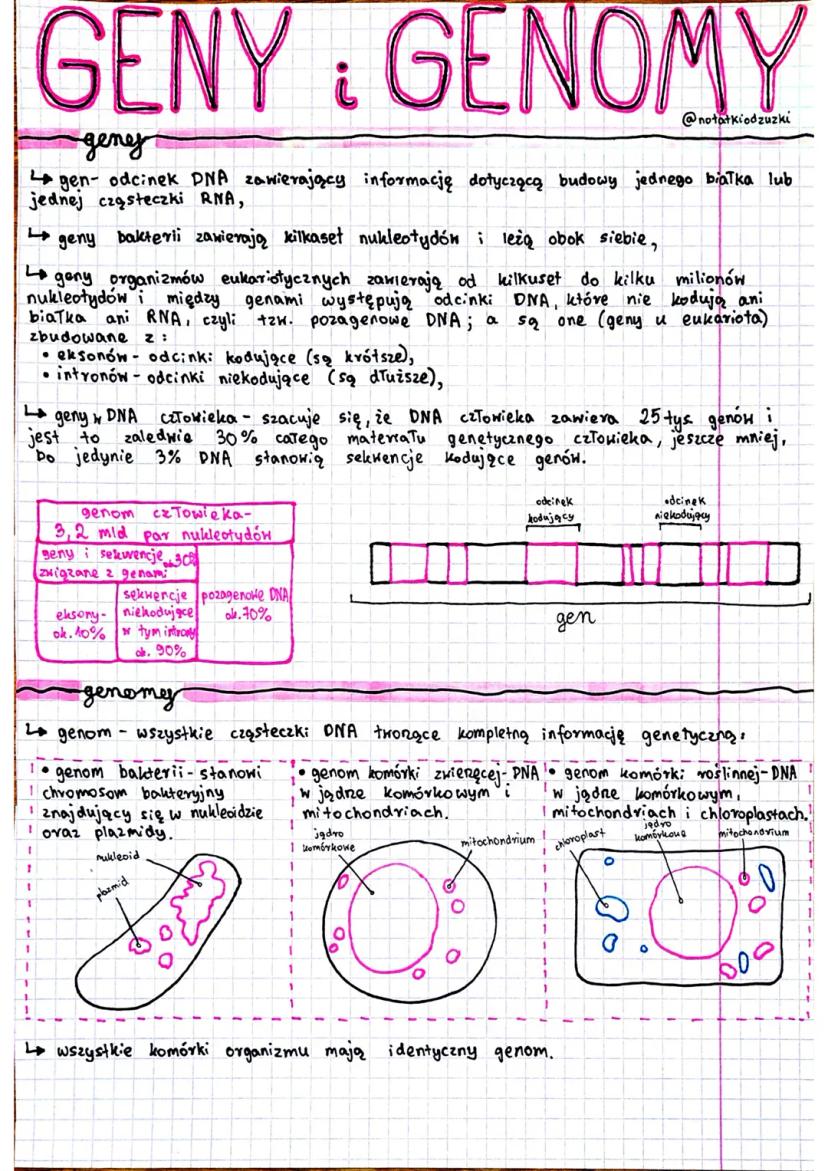 GENY i GENOMY
@notatkiodzuzki
geny
↳ gen- odcinek DNA zawierający informację dotyczącą budowy jednego białka lub
jednej cząsteczki RNA,
↳ geny bakterii zawierają kilkaset nukleotydów i leżą obok siebie,
↳ geny organizmów eukariotycznych zawierają od kilkuset do kilku milionów
nukleotydów i między genami występują odcinki DNA, które nie kodują ani
białka ani RNA, czyli tzw. pozagenowe DNA; a są one (geny u eukariota)
zbudowane z:
• eksonów - odcinki kodujące (są krótsze),
• intronów - odcinki niekodujące (są dłuższe),
↳ geny w DNA człowieka - szacuje się, że DNA człowieka zawiera 25 tys. genów i
jest to zaledwie 30% całego materiału genetycznego człowieka, jeszcze mniej,
bo jedynie 3% DNA stanowią sekwencje kodujące genów.
genom człowieka-
3,2 mld par nukleotydów
geny i sekwencje ok. 30%
związane z genami
eksony-
ok. 10%
sekwencje
niekodujące
w tym introny
ok. 90%
pozagenowe DNA
ok. 70%
odcinek
kodujący
odcinek
niekodujący
gen
genomy
↳ genom - wszystkie cząsteczki DNA tworzące kompletną informację genetyczną:
• genom bakterii - stanowi
chromosom bakteryjny
znajdujący się w nukleoidzie
oraz plazmidy.
nukleoid
plazmid
• genom komórki zwierzęcej- DNA
w jądrze komórkowym i
mitochondriach.
jądro
komórkowe
mitochondrium
• genom komórki roślinnej- DNA
w jądrze komórkowym,
mitochondriach i chloroplastach.
chloroplast
jądro
komórkowe
mitochondrium
↳ wszystkie komórki organizmu mają identyczny genom.